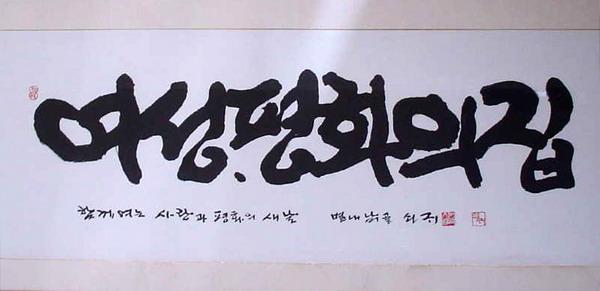 여성.평화의집
함께 여는 사랑과 평화의 새날